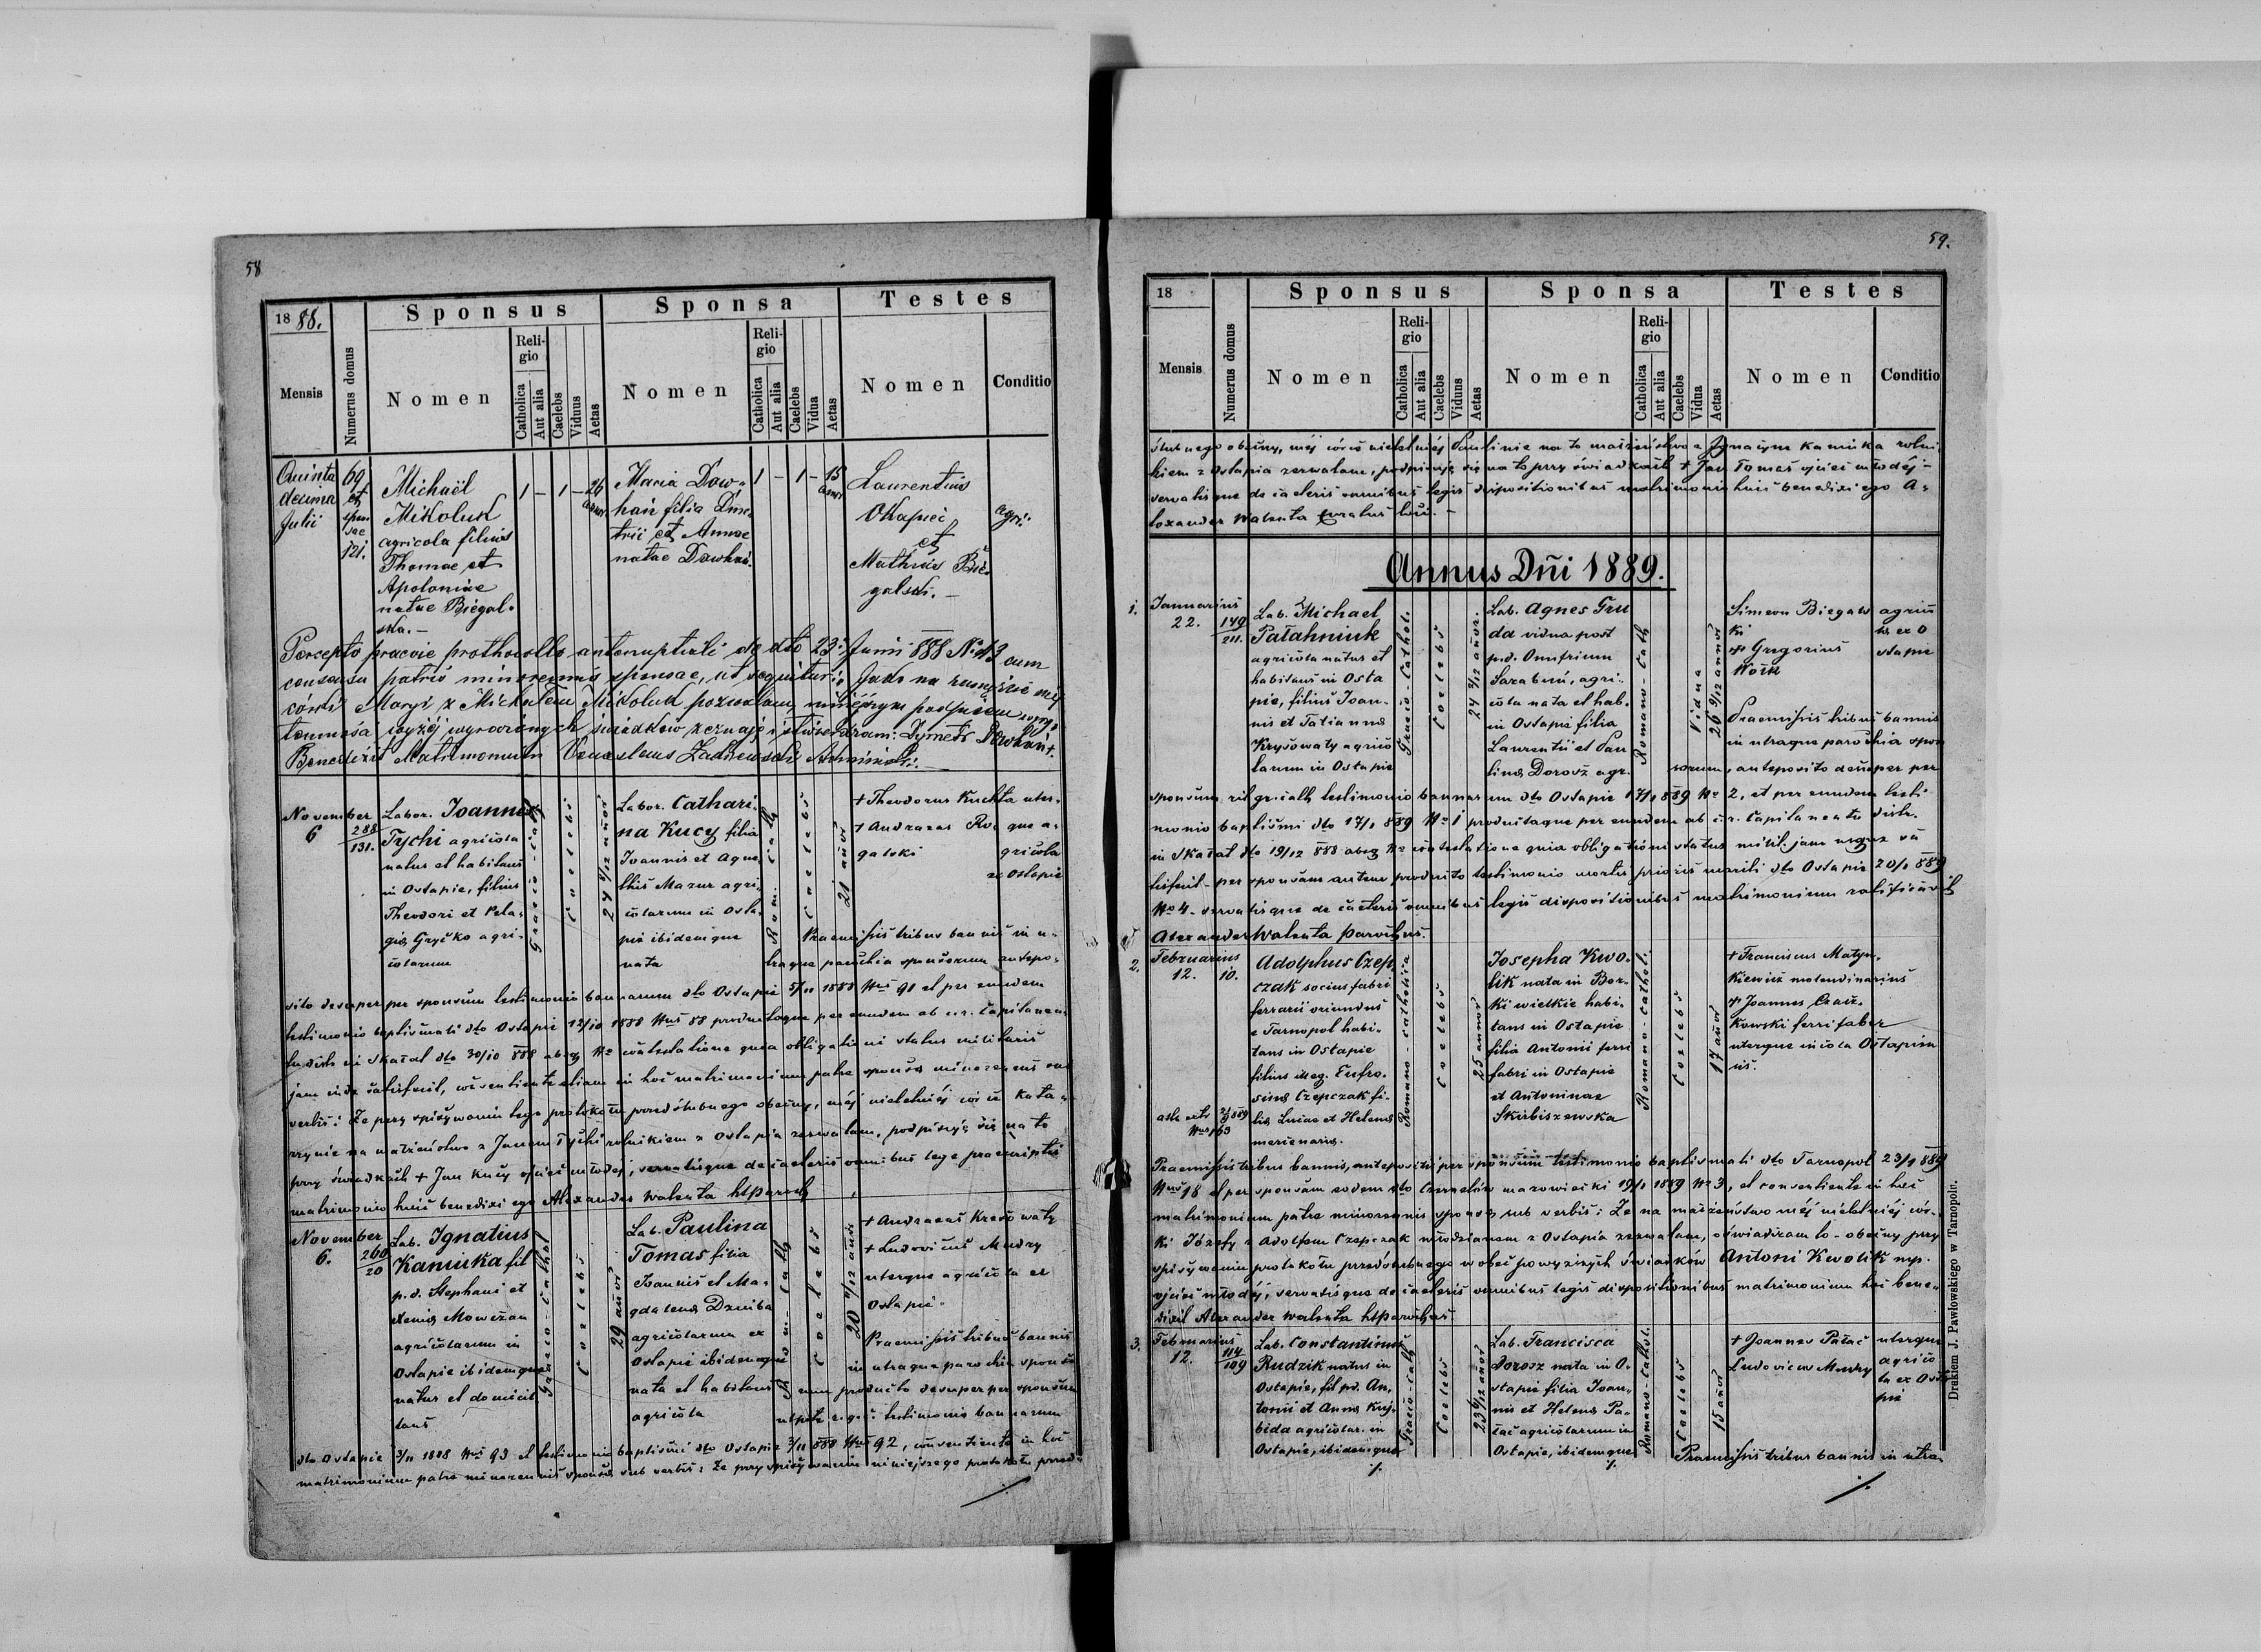 58
1888.
Mensis
Numerus domus
Sponsus
Nomen
Religio
Catholica
Aut alia
Caelebs
Viduus
Aetas
Sponsa
Nomen
Religio
Catholica
Aut alia
Caelebs
Vidua
Aetas
Testes
Nomen
Conditio
Quinta
decima
Julii
69
et
spon
sae
121.
Michaël
Mikoluk
agricola filius
Thomae et
Apoloniae
natae Biegal-
ska.-
1 – 1 – 26
annor.
Maria Dow-
han filia Dme-
trii et Annae
natae Dowhań.
1 – 1 – 15
annor
Laurentius
Okapiec
et
Mathias Bie-
galski. –
agri.
Percepto praevie prothocollo antenuptiali de dto 23. Junii 888 N. 43 cum
consensu patris minorennis sponsae, ut sequitur: Jako na zamęźcie mej
córki Maryi z Michałem Mikoluk pozwalam, niniejszym podpisem
wyżej wyrażonych świadków zeznaję i stwierdzam: Dymetr Dowhań+.
Benedixit Matrimonium Venceslaus Administr.
November
6
288
131.
Labor. Joannes
Tychi agricola
natus et habitans
in Ostapie, filius
Theodori et Pela-
giae Gryćko agri-
colarum
Graeco-cath
Coelebs
24 annor
Labor. Cathari-
na Kucy filia
Joannis et Agne-
this Mazur agri-
colarum in Osta-
pie ibidemque
nata
Rom. cath
Coelebs
21 annor
+ Theodorus Kuchta uter-
+ Andraeas Ro- que a-
galski gricola
ex Ostapie
Praemissis tribus bannis in u-
traque parochia sponsorum antepo-
sito desuper per sponsum testimonio bannorum dto Ostapie 5/11 1888 Nus 91 et per eundem
testimonio baptismati dto Ostapie 12/10 1888 Nus 88 productoque per eundem ab c.r. Capitanea-
tu distr. in Skałat dto 30/10 888 absq No contestatione quia obligationi status militaris
jam satisfecit, consentiente etiam in hoc matrimonium patre sponsae minorennis sub
verbis: Że przy spisywaniu tego protokołu przedślubnego obecny, mej nieletniej córce Kata-
rzynie na małżeństwo z Janem Tychi rolnikiem z Ostapia zezwalam, podpisuję się na to
przy świadkach + Jan Kucy ojciec młodej, servatisque de caeteris omnibus lege praescriptis
matrimonio huic benedixi ego Alexander Walenta
November
6.
260
20
Lab. Ignatius
Kaminka fil
p.d. Stephani et
Xeniae Mowczan
agricolarum in
Ostapie ibidemque
natus et domicil
tans
Graeco-cathol
Coelebs
29 annor
Lab. Paulina
Tomas filia
Joannis et Ma-
gdalenae Dziuba
agricolarum ex
Ostapie ibidemque
nata et habitans
agricola
Rom-cath
Coelebs
20 11/12 annor
+ Andraeas Kresowaty
+ Ludovicus Mudry
uterque agricola ex
Ostapie.
Praemissis tribus bannis
in utraque parochia sponso-
rum producto desuper per sponsum
testimonio bannorum
dto Ostapie 3/11 1888 Nus 93 et testimonio baptismi dto Ostapie 3/11 888 Nus 92, consentiente in hoc
matrimonium patre minorennis sponsae sub verbis: Że przy spisywaniu niniejszego protokołu przed-
59.
18
Mensis
Numerus domus
Sponsus
Nomen
Religio
Catholica
Aut alia
Caelebs
Viduus
Aetas
Sponsa
Nomen
Religio
Catholica
Aut alia
Caelebs
Vidua
Aetas
Testes
Nomen
Conditio
ślubnego obecny, mej córce nieletniej Paulinie na to małżeństwo z Ignacym Kaminka rolni-
kiem z Ostapia zezwalam, podpisuję się na to przy świadkach + Jan Tomas ojciec młodej -
servatisque de caeteris omnibus legis dispositionibus matrimonio huic benedixi ego A-
lexander Walenta curatus loci. –
Annus Dñi 1889.
1.
Januarius
22.
149
211.
Lab. Michael
Pałahniuk
agricola natus et
habitans in Osta
pie, filius Joan-
nis et Tatiannae
Krysowaty agrico
larum in Ostapie
Graeco-Cathol.
Coelebs
24 annor.
Lab. Agnes Gru
da vidua post
p.d. Onufrium
agri-
cola nata et hab.
in Ostapie filia
Laurentii et Pau
linae Dorosz agr.
Romano-Cath
Vidua
26 9/12 annor
Simeon Biegals
ki
+ Gregorius
Wołk
agrico
la ex O
stapie
Praemissis tribus bannis
in utraque parochia spon
sorum, anteposito desuper per
sponsum rit gr.cath testimonio bannorum dto Ostapie 17/1 889 No 2, et per eundem testi
monio baptismi dto 17/1 889 No 1 productoque per eundem ab c.r. Capitaneatu distr.
in Skałat dto 19/12 888 absq No contestatione quia obligationi status milit. jam usque sa
tisfecit - per sponsam autem producto testimonio mortis prioris mariti dto Ostapie 20/1 889
No 4 - servatisque de caeteris omnibus legis dispositionibus matrimonium ratificavit
Alexander Walenta parochus.
2.
Februarius
12.
10.
Adolphus Czep
czak socius fabri
ferrarii oriundus
e Tarnopol habi-
tans in Ostapie
filius illeg. Eufro-
sinae Czepczak fi-
liae Lucae et Helenae
mercenaria.
Romano-catholica
Coelebs
25 annor
Josepha Kwo-
lik nata in Bor-
ki wielkie habi-
tans in Ostapie
filia Antonii ferri
fabri in Ostapie
et Antoninae
Skirbiszewska
Romano-cathol.
Coelebs
17 annor
+ Franciscus Matys-
kiewicz molendinarius
+ Joannes Czaiz-
kowski ferrifaber
uterque incola Ostapien
sis.
Praemissis tribus bannis, anteposito per sponsum testimonio baptismati dto Tarnopol 23/1 889
Nus 18 et per sponsam eodem dto Czernelów mazowiecki 19/1 1889 No 3, et consentiente in hoc
matrimonium patre minorennis sponsae sub verbis: Że na małżeństwo mej nieletniej cór-
ki Józefy z Adolfem Czepczak młodzianem z Ostapia zezwalam, oświadczam to - obecny przy
spisywaniu protokołu przedślubnego wobec powyższych świadków Antoni Kwolik mp.
ojciec młodej, servatisque de caeteris omnibus legis dispositionibus matrimonium hoc bene-
dixit Alexander Walenta
3.
Februarius
12.
114
109
Lab. Constantinus
Rudzik natus in
Ostapie, fil pd. An-
tonii et Annae Kuj-
bida agricolar. in
Ostapie, ibidemque
Graeco-cath
Coelebs
23 annor
Lab. Francisca
Dorosz nata in O-
stapie filia Joan-
nis et Helenae Pa-
łac agricolarum in
Ostapie, ibidemque
Romano-cathol.
Coelebs
15 annor
+ Joannes Pałac
Ludovicus Mudry
uterque
agrico
la ex Osta
pie
Praemissis tribus bannis in utra-
./.
Drukiem J. Pawłowskiego w Tarnopolu.